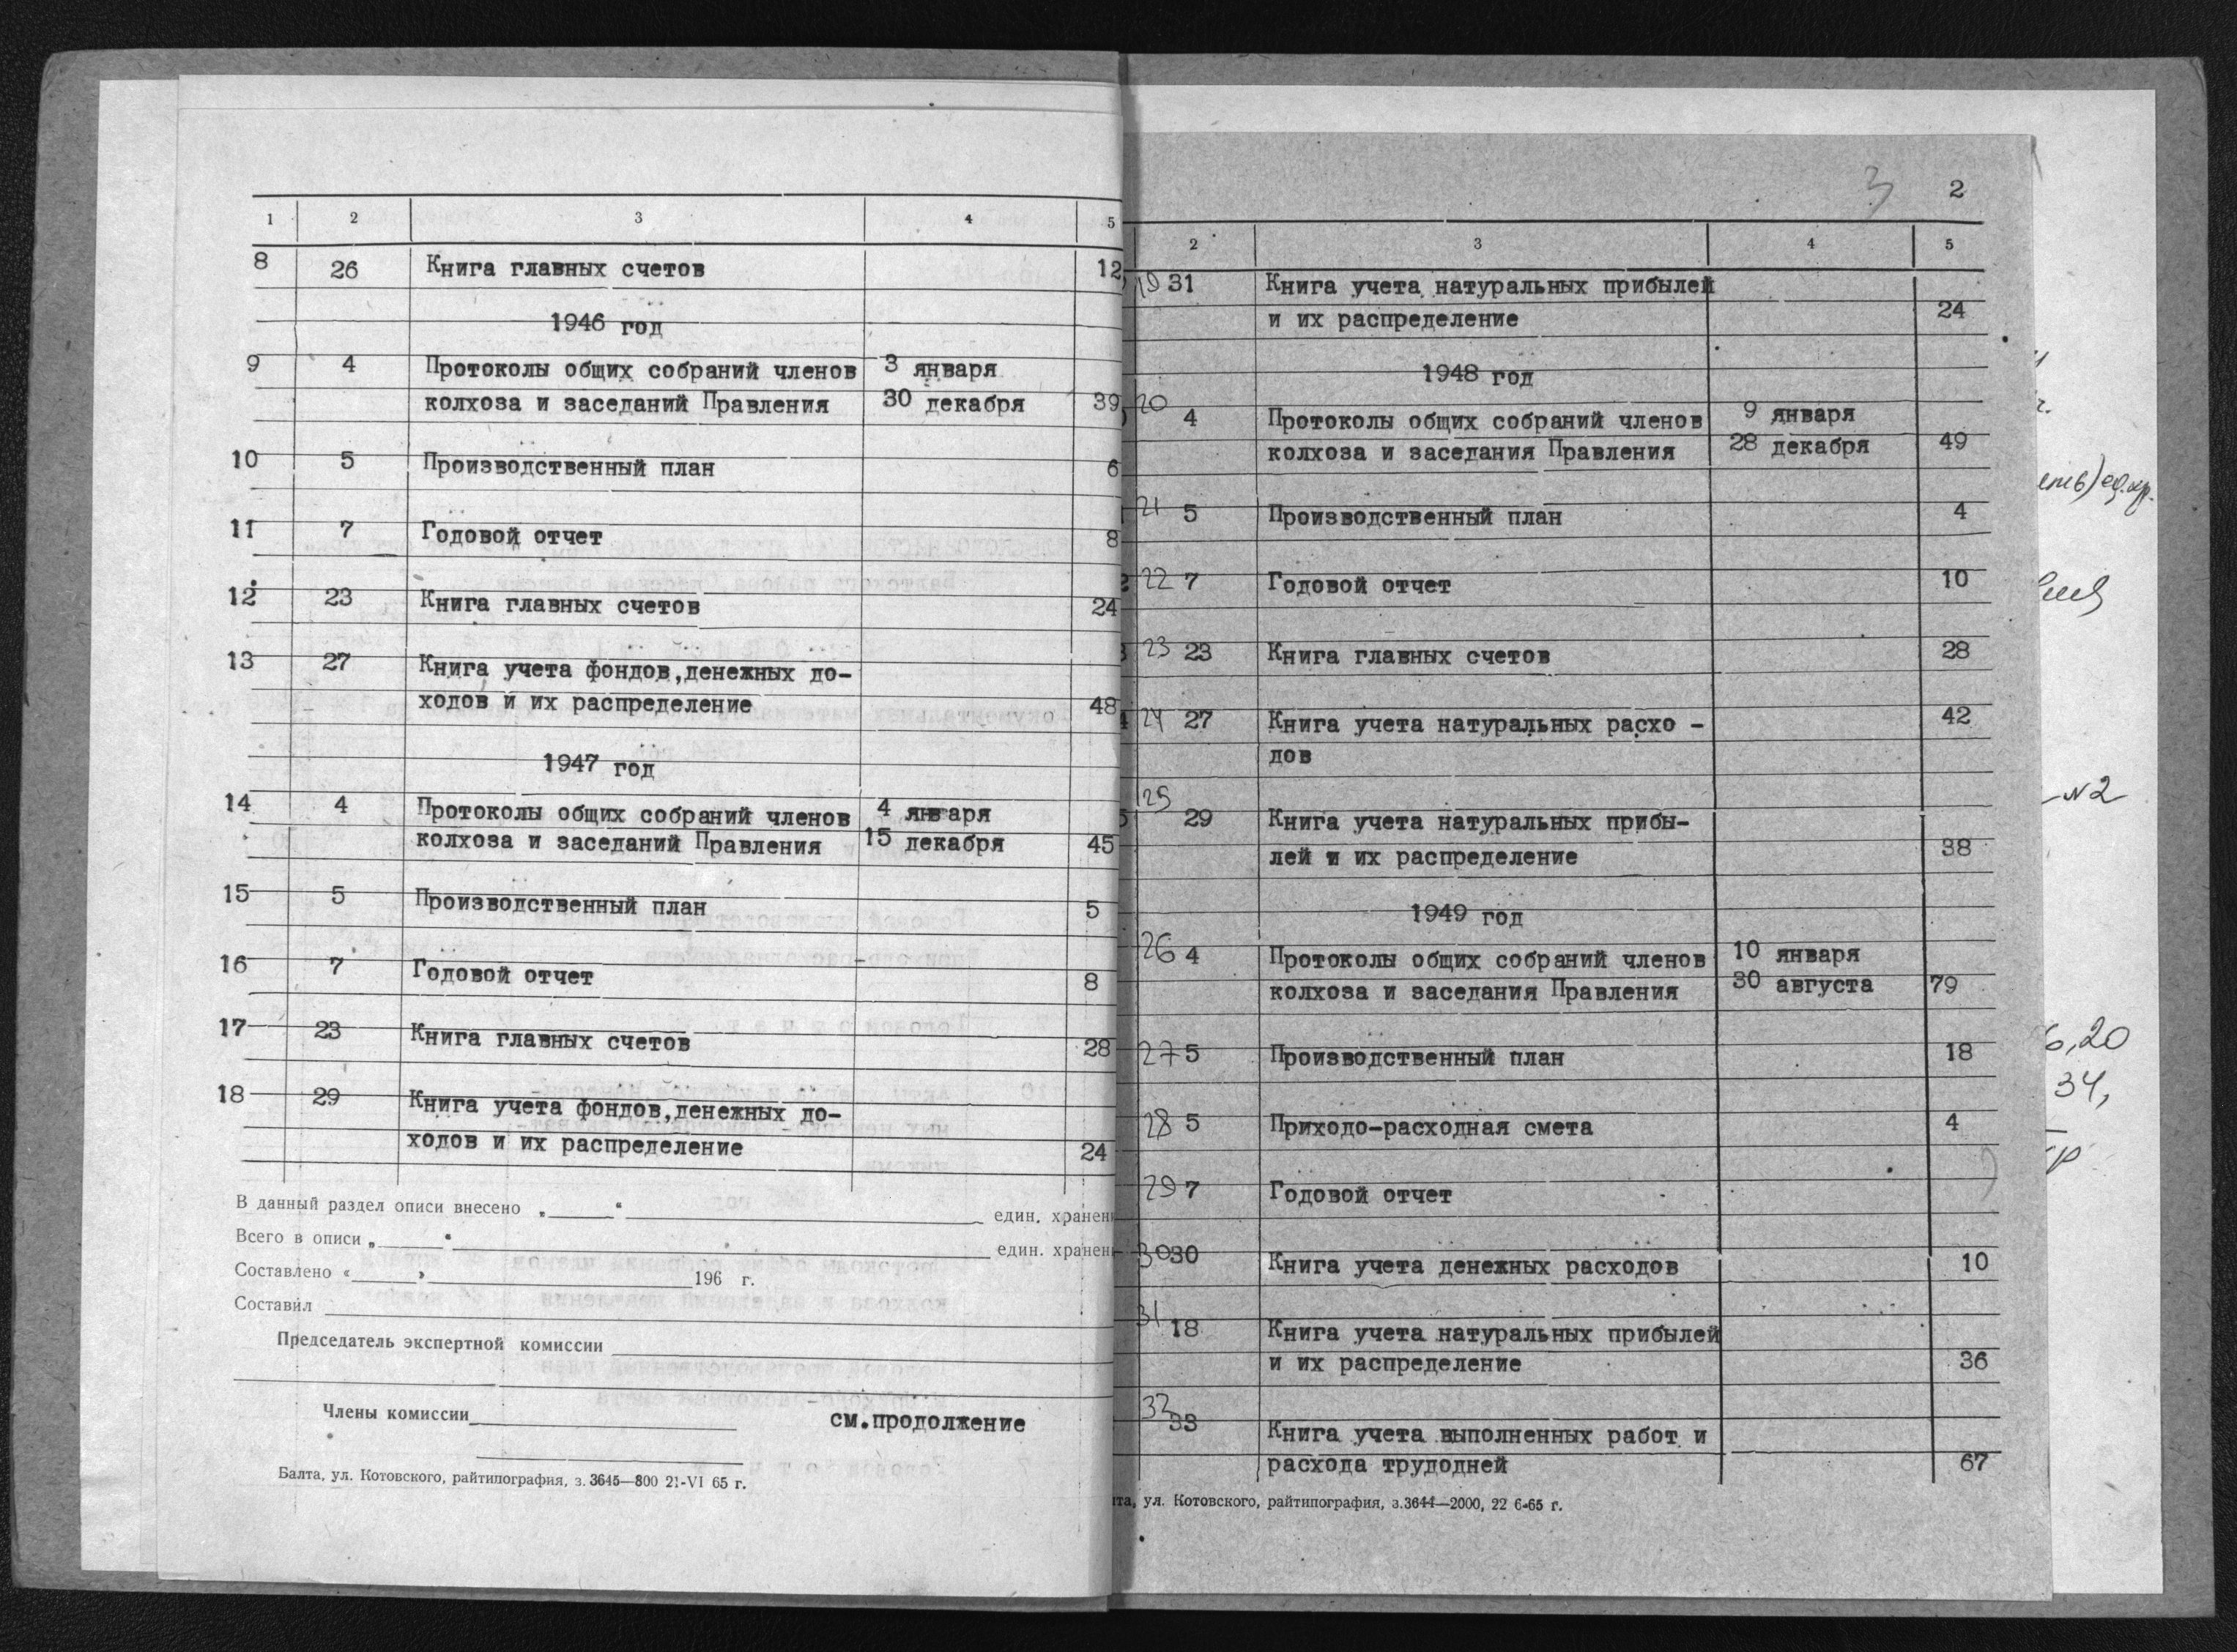 1 2 3 4 5
8 26 Книга главных счетов 12
1946 год
9 4 Протоколы общих собраний членов 3 января
колхоза и заседаний Правления 30 декабря 39
10 5 Производственный план 6
11 7 Годовой отчет 8
12 23 Книга главных счетов 24
13 27 Книга учета фондов,денежных до-
ходов и их распределение 48
1947 год
14 4 Протоколы общих собраний членов 4 января
колхоза и заседаний Правления 15 декабря 45
15 5 Производственный план 5
16 7 Годовой отчет 8
17 23 Книга главных счетов 28
18 29 Книга учета фондов,денежных до-
ходов и их распределение 24
В данный раздел описи внесено „ “ един. хранен
Всего в описи „ “ един. хранен
Составлено « » 196 г.
Составил
Председатель экспертной комиссии
Члены комиссии
см.продолжение
Балта, ул. Котовского, райтипография, з. 3645—800 21-VI 65 г.
3 2
2 3 4 5
19 31 Книга учета натуральных прибылей
и их распределение 24
1948 год
20 4 Протоколы общих собраний членов 9 января
колхоза и заседания Правления 28 декабря 49
21 5 Производственный план 4
22 7 Годовой отчет 10
23 23 Книга главных счетов 28
24 27 Книга учета натуральных расхо - 42
дов
25 29 Книга учета натуральных прибы-
лей и их распределение 38
1949 год
26 4 Протоколы общих собраний членов 10 января
колхоза и заседания Правления 30 августа 79
27 5 Производственный план 18
28 5 Приходо-расходная смета 4
29 7 Годовой отчет
30 30 Книга учета денежных расходов 10
31 18 Книга учета натуральных прибылей
и их распределение 36
32 33 Книга учета выполненных работ и
расхода трудодней 67
та, ул. Котовского, райтипография, з.3644—2000, 22 6-65 г.
N2
6,20
34,